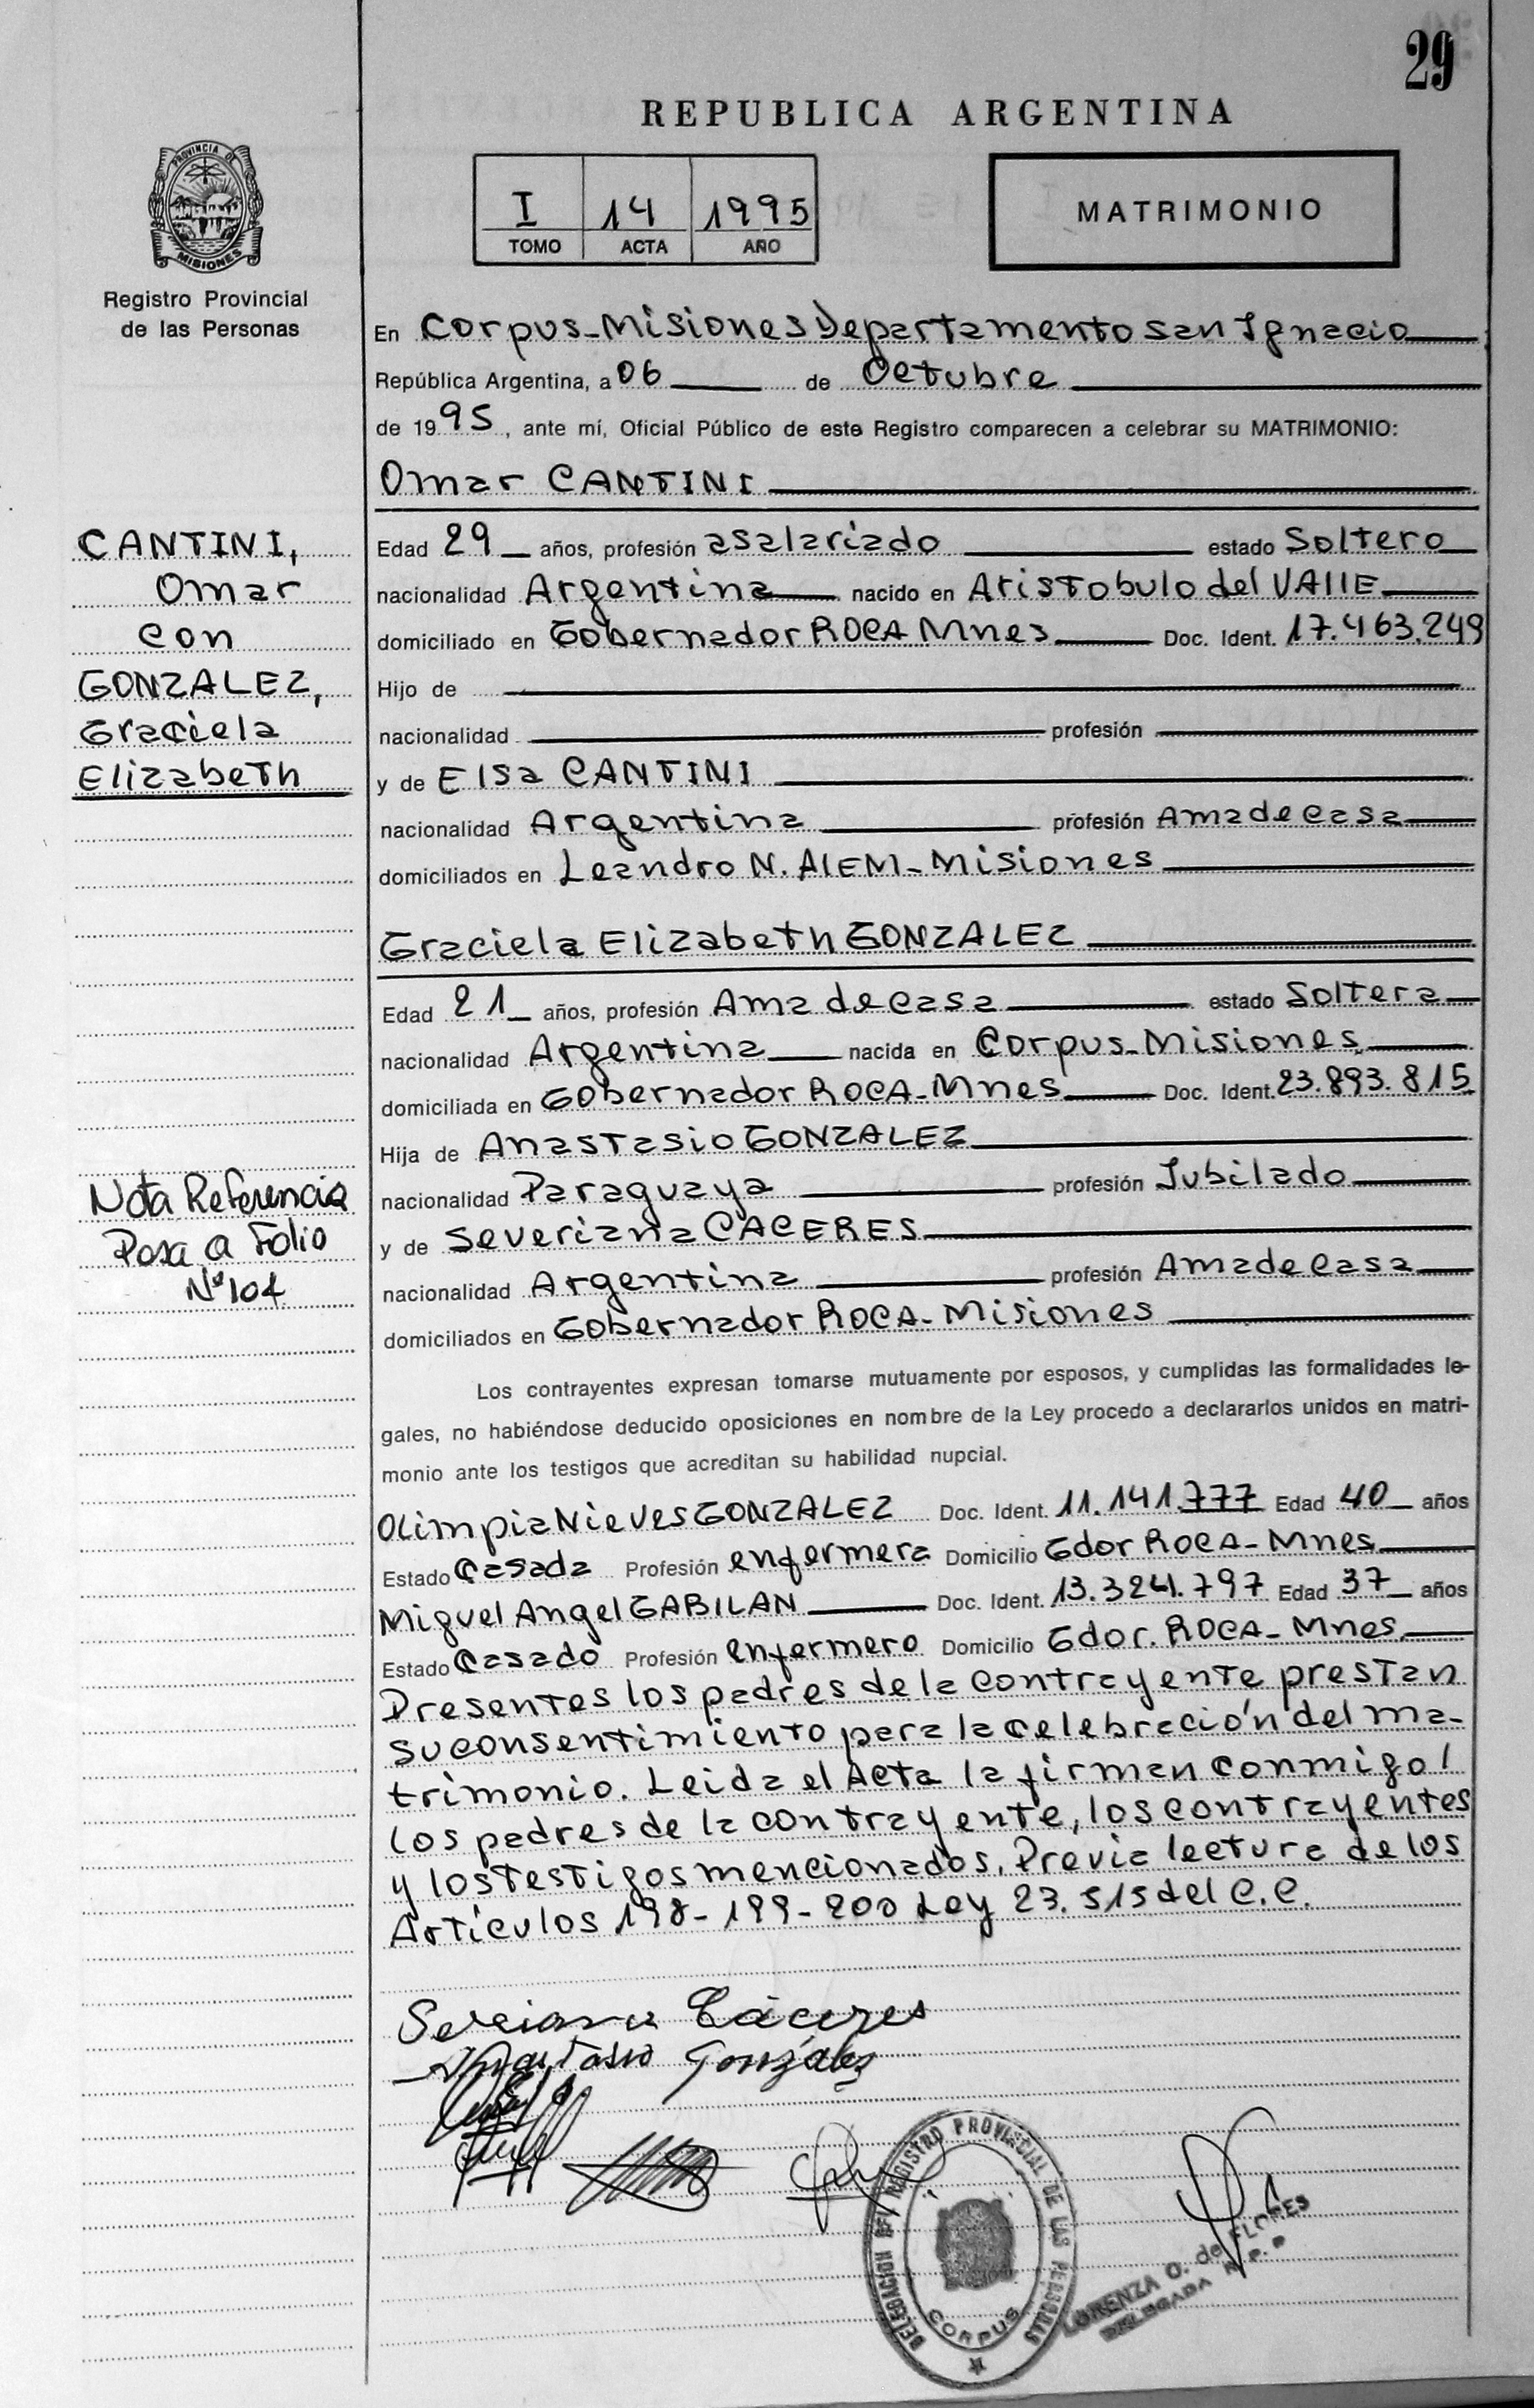 29
REPUBLICA ARGENTINA
PROVINCIA DE
MISIONES
Registro Provincial
de las Personas
I 14 1995
TOMO ACTA AÑO
MATRIMONIO
En Corpus-Misiones Departamento San Ignacio
República Argentina, a 06 de Octubre
de 1995, ante mí, Oficial Público de este Registro comparecen a celebrar su MATRIMONIO:
Omar CANTINI
CANTINI,
Omar
con
GONZALEZ,
Graciela
Elizabeth
Edad 29 años, profesión asalariado estado Soltero
nacionalidad Argentina nacido en Aristobulo del VAllE
domiciliado en Gobernador ROCA Mnes Doc. Ident. 17.463.249
Hijo de
nacionalidad profesión
y de Elsa CANTINI
nacionalidad Argentina profesión Ama de Casa
domiciliados en Leandro N. AlEM-Misiones
Graciela Elizabeth GONZALEZ
Edad 21 años, profesión Ama de Casa estado Soltera
nacionalidad Argentina nacida en Corpus-Misiones
domiciliada en Gobernador ROCA-Mnes Doc. Ident. 23.893.815
Hija de Anastasio GONZALEZ
nacionalidad Paraguaya profesión Jubilado
y de Severiana CACERES
nacionalidad Argentina profesión Ama de Casa
domiciliados en Gobernador ROCA-Misiones
Nota Referencia
Pasa a Folio
Nº 104
Los contrayentes expresan tomarse mutuamente por esposos, y cumplidas las formalidades le-
gales, no habiéndose deducido oposiciones en nombre de la Ley procedo a declararlos unidos en matri-
monio ante los testigos que acreditan su habilidad nupcial.
Olimpia Nieves GONZALEZ Doc. Ident. 11.141.777 Edad 40 años
Estado Casada Profesión enfermera Domicilio Gdor ROCA-Mnes
Miguel Angel GABILAN Doc. Ident. 13.324.797 Edad 37 años
Estado Casado Profesión enfermero Domicilio Gdor. ROCA-Mnes
Presentes los padres de la contrayente prestan
su consentimiento para la celebración del ma-
trimonio. Leida el Acta la firman conmigo/
los padres de la contrayente, los contrayentes
y los testigos mencionados. Previa lectura de los
Artículos 198-199-200 Ley 23.515 del C.C.
Cáceres
González
DELEGACION DEL REGISTRO PROVINCIAL DE LAS PERSONAS
CORPUS
LORENZA O. de FLORES
DELEGADA R. P. P